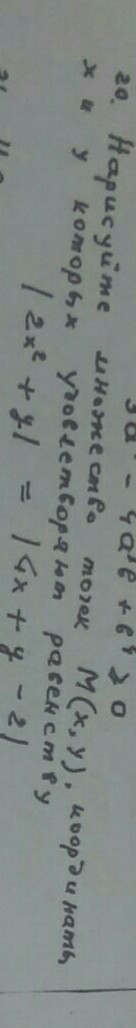 3a⁴ - 4a³b + b⁴ ≥ 0
20. Нарисуйте множество точек M(x, y), координаты
x и y которых удовлетворяют равенству
|2x² + y| = |4x + y - 2|